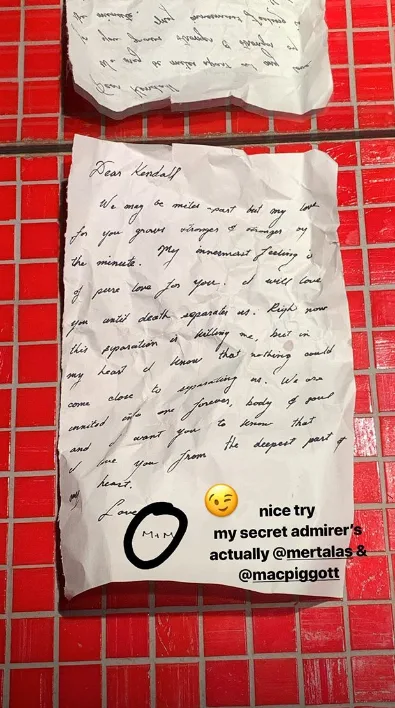 Dear Kendall
We may be miles -part but my love
for you grows stronger & stronger by
the minute. My innermost feeling is
of pure love for you. I will love
you until death separates us. Righ now
this separation is killing me, but in
my heart I know that nothing could
come close to separating us. We are
united into one forever, body & soul
and I want you to know that
I love you from the deepest part of
my heart.
Love
M+M
😉 nice try
my secret admirer's
actually @mertalas &
@macpiggott